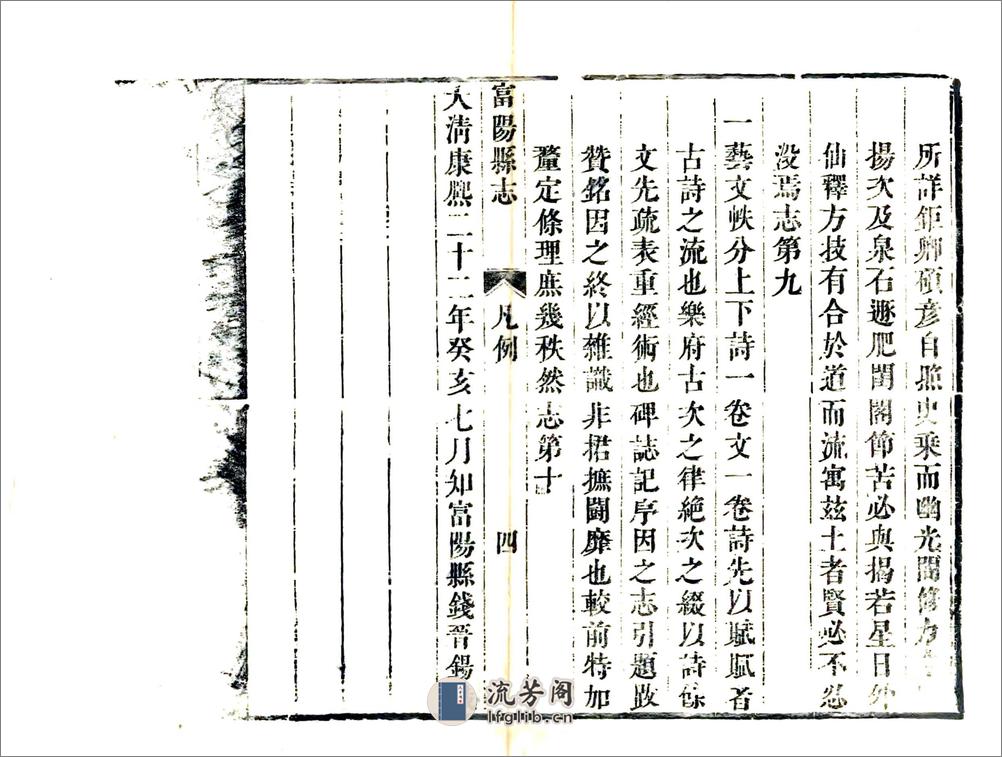 所詳鉅卿碩彥自照史乘而幽光闇修
揚次及泉石遯肥閨閣節苦必與揭若星日外
仙釋方技有合於道而流寓兹土者賢必不忍
没焉志第九
一藝文帙分上下詩一卷文一卷詩先以賦賦者
古詩之流也樂府古次之律絶次之綴以詩餘
文先疏表重經術也碑誌記序因之志引題跋
贊銘因之終以雜識非捃摭鬬靡也較前特加
釐定條理庶幾秩然志第十
富陽縣志 凡例 四
大清康熙二十二年癸亥七月知富陽縣錢晉錫
流芳阁
lfglib.cn